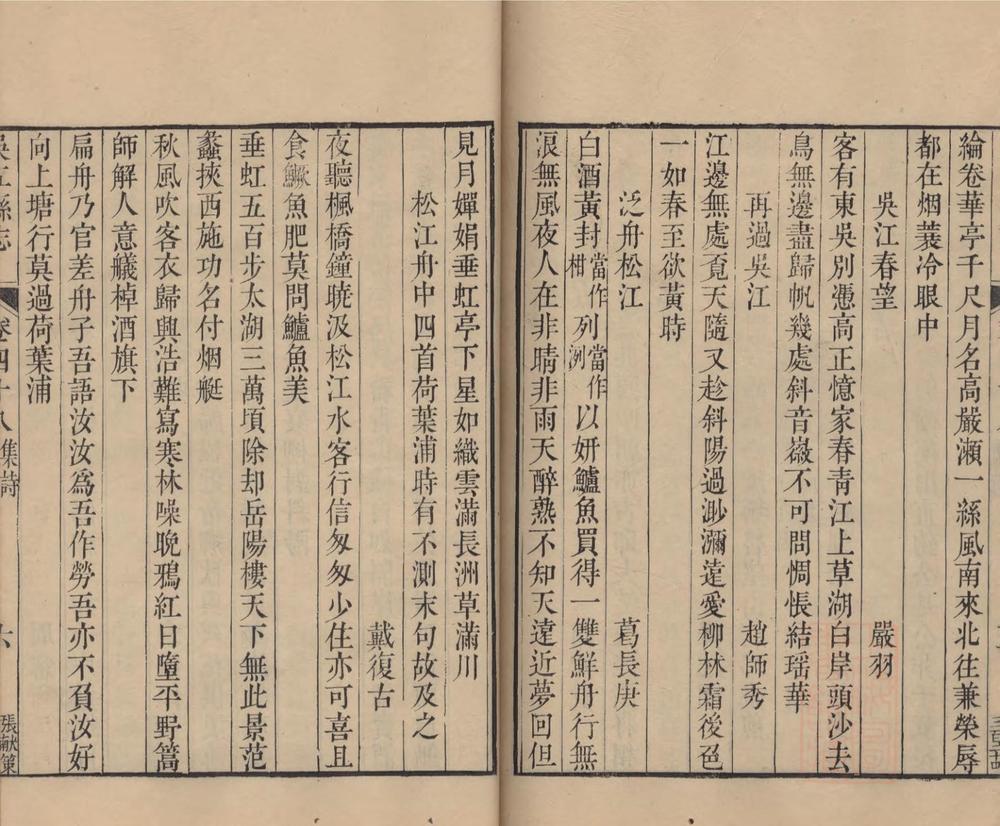 綸卷華亭千尺月名高嚴瀬一絲風南來北徃兼榮辱
都在烟蓑冷眼中
吳江春望　嚴羽
客有東吳別憑高正憶家春青江上草湖白岸頭沙去
鳥無邊盡歸帆幾處斜音㣲不可問惆悵結瑶華
再過吳江　趙師秀
江邊無處覔天隨又趁斜陽過渺瀰遠愛柳林霜後色
一如春至欲黃時
泛舟松江　葛長庚
白酒黃封當作柑列當作洌以妍鱸魚買得一雙鮮舟行無
浪無風夜人在非晴非雨天醉熟不知天遠近夢回但
見月嬋娟垂虹亭下星如織雲滿長洲草滿川
松江舟中四首荷葉浦時有不測末句故及之
戴復古
夜聽楓橋鐘曉汲松江水客行信匆匆少住亦可喜且
食鱖魚肥莫問鱸魚美
垂虹五百步太湖三萬頃除却岳陽樓天下無此景范
蠡挾西施功名付烟艇
秋風吹客衣歸興浩難寫寒林噪晚鴉紅日墮平野篙
師解人意艤棹酒旗下
扁舟乃官差舟子吾語汝汝為吾作勞吾亦不負汝好
向上塘行莫過荷葉浦
吳江縣志　卷四十八集詩　六　張獻策